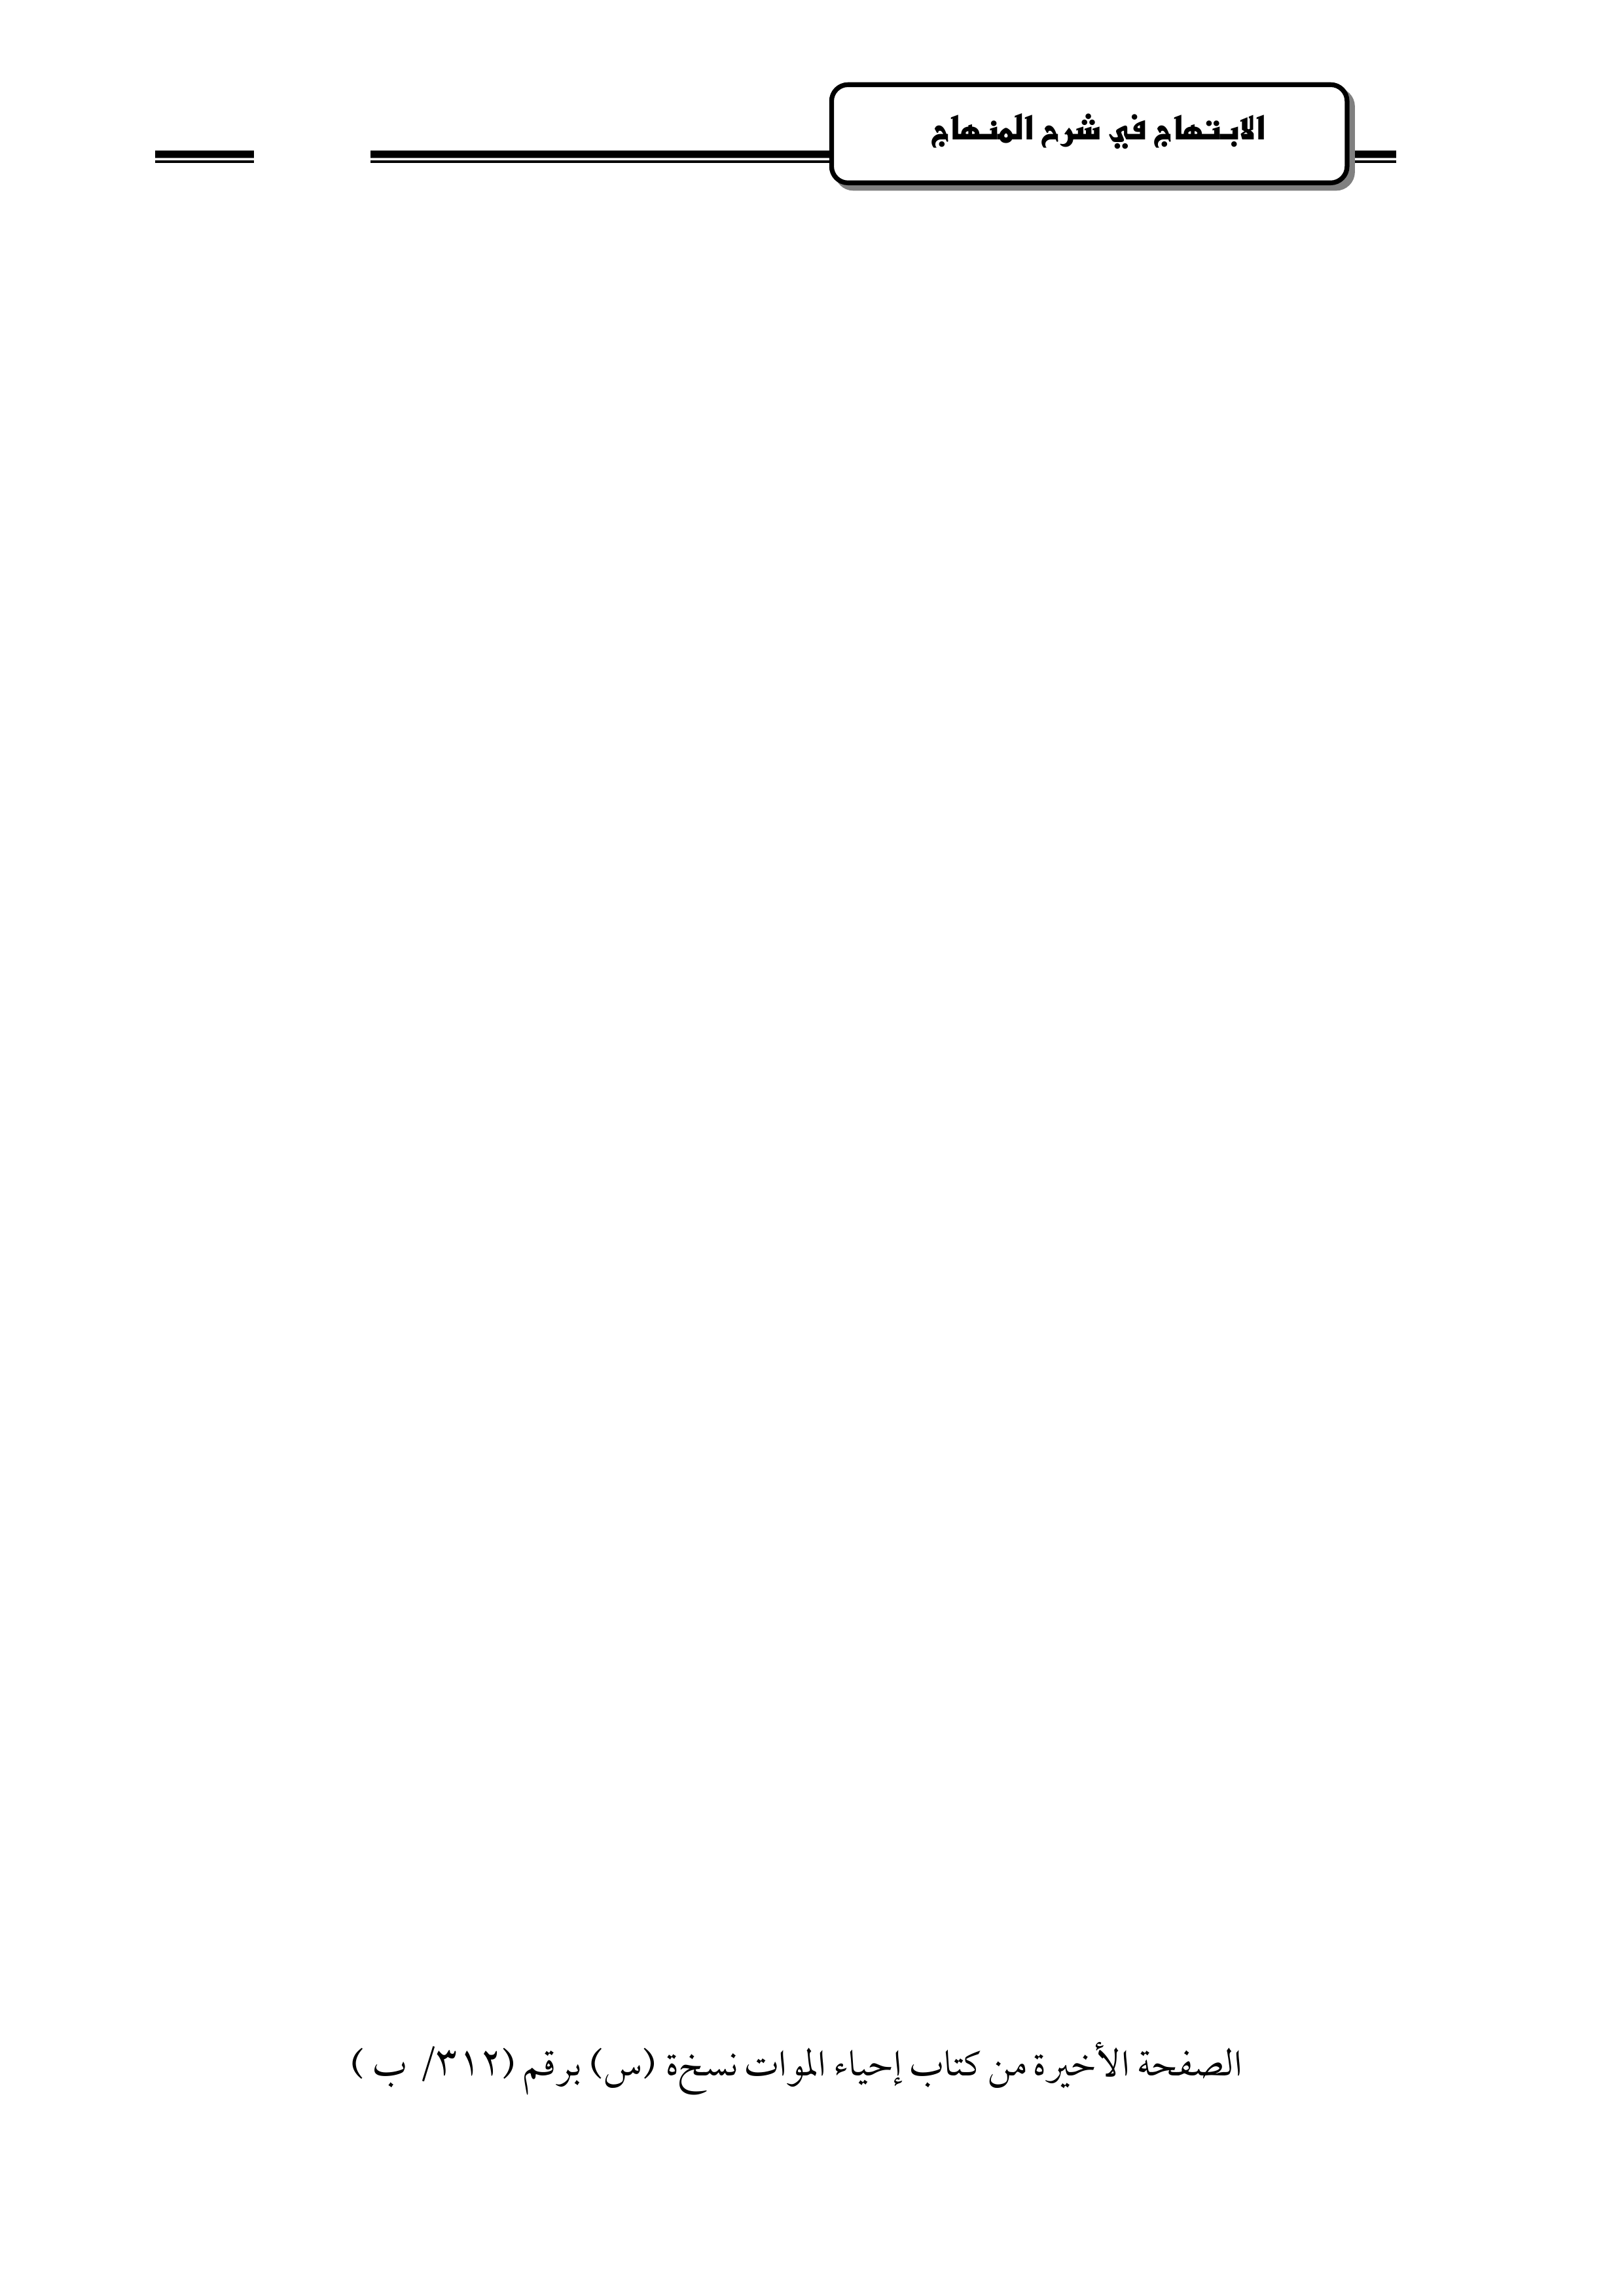 الابتهاج في شرح المنهاج
الصفحة الأخيرة من كتاب إحياء الموات نسخة (س) برقم (٣١٢/ ب )